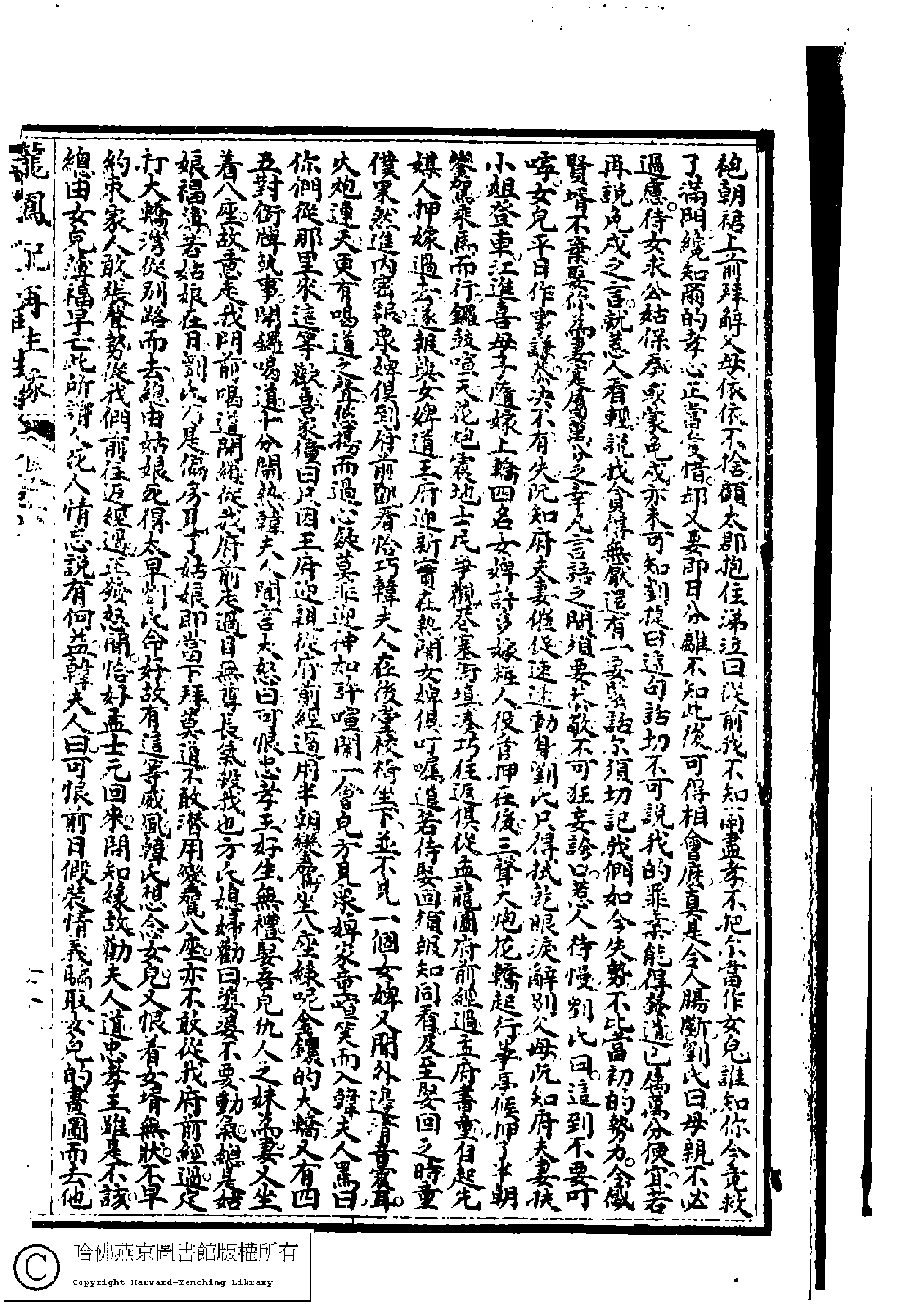 袍朝裙上前拜辭父母依依不捨顧太郡抱住涕泣曰從前我不知爾盡孝不把尔當作女兒誰知你今竟救
了滿門纔知爾的孝心正當愛惜却又要即日分離不知此後可得相會庅真是令人腸斷劉氏曰母親不必
過慮待女求公姑保奏或蒙免戍亦未可知劉捷曰這句話切不可說我的罪業能得發遣已属萬分便宜若
再說免戍之言就惹人看輕說我貪得無厭還有一要緊話尔須切記我們如今失勢不比當初的勢力今感
賢壻不棄娶你為妻實属萬分之幸凡言語之間須要恭敬不可狂妄誇口惹人待慢劉氏曰這到不要可
嘆女兒平日作事謙恭決不有失阮知府夫妻催促速速動身劉氏只得拭乾眼淚辭別父母阮知府夫妻扶
小姐登車江進喜母子隨嫁上轎四名女婢許多嫁粧人役首押在後三聲大炮花轎起行畢房候押了半朝
鑾駕乘馬而行鑼鼓喧天花炮震地士民爭觀塞街填湊巧往返俱從孟龍圖府前經過孟府書童自起先
媒人押嫁過去逐報與女婢道王府迎新實在熱鬧女婢俱叮囑道若待娶回須報知同看及至娶回之時童
僕果然進內密報眾婢俱到府前觀看恰巧韓夫人在後堂倚坐下並不見一個女婢又聞外邊清音震耳
火炮連天更有喝道之聲悠揚而過心疑莫非迎神如許喧鬧一會兒方見眾婢家童喜笑而入韓夫人罵曰
你們從那里來這等歡喜家僮曰只因王府迎親從府前經過用半朝鑾駕坐八座綠呢金鑲的大轎又有四
五對銜牌執事開鑼喝道十分鬧熱韓夫人聞言大怒曰可恨忠孝王好生無禮娶吾兒仇人之妹為妻又坐
着八座故意走我門前喝道開鑼從我府前走過目無尊長氣殺我也方氏媳婦勸曰婆婆不要動氣總是姑
娘福薄若姑娘在日劉氏乃是偏房見了姑娘即當下拜莫道不敢潛用鑾駕八座亦不敢從我府前經過定
打大轎灣從別路而去總由姑娘死得太早劉氏命好故有這等威風韓氏想念女兒又恨着女壻無狀不早
約束家人敢張聲勢從我們前往返經過正發怒間恰好孟士元回來聞知緣故勸夫人道忠孝王雖是不該
總由女兒薄福早亡此所謂人死人情忘說有何益韓夫人曰可恨前日假裝情義騙取女兒的畫圖而去他
龍鳳 再生緣
十八
哈佛燕京圖書館版權所有
Copyright Harvard-Yenching Library